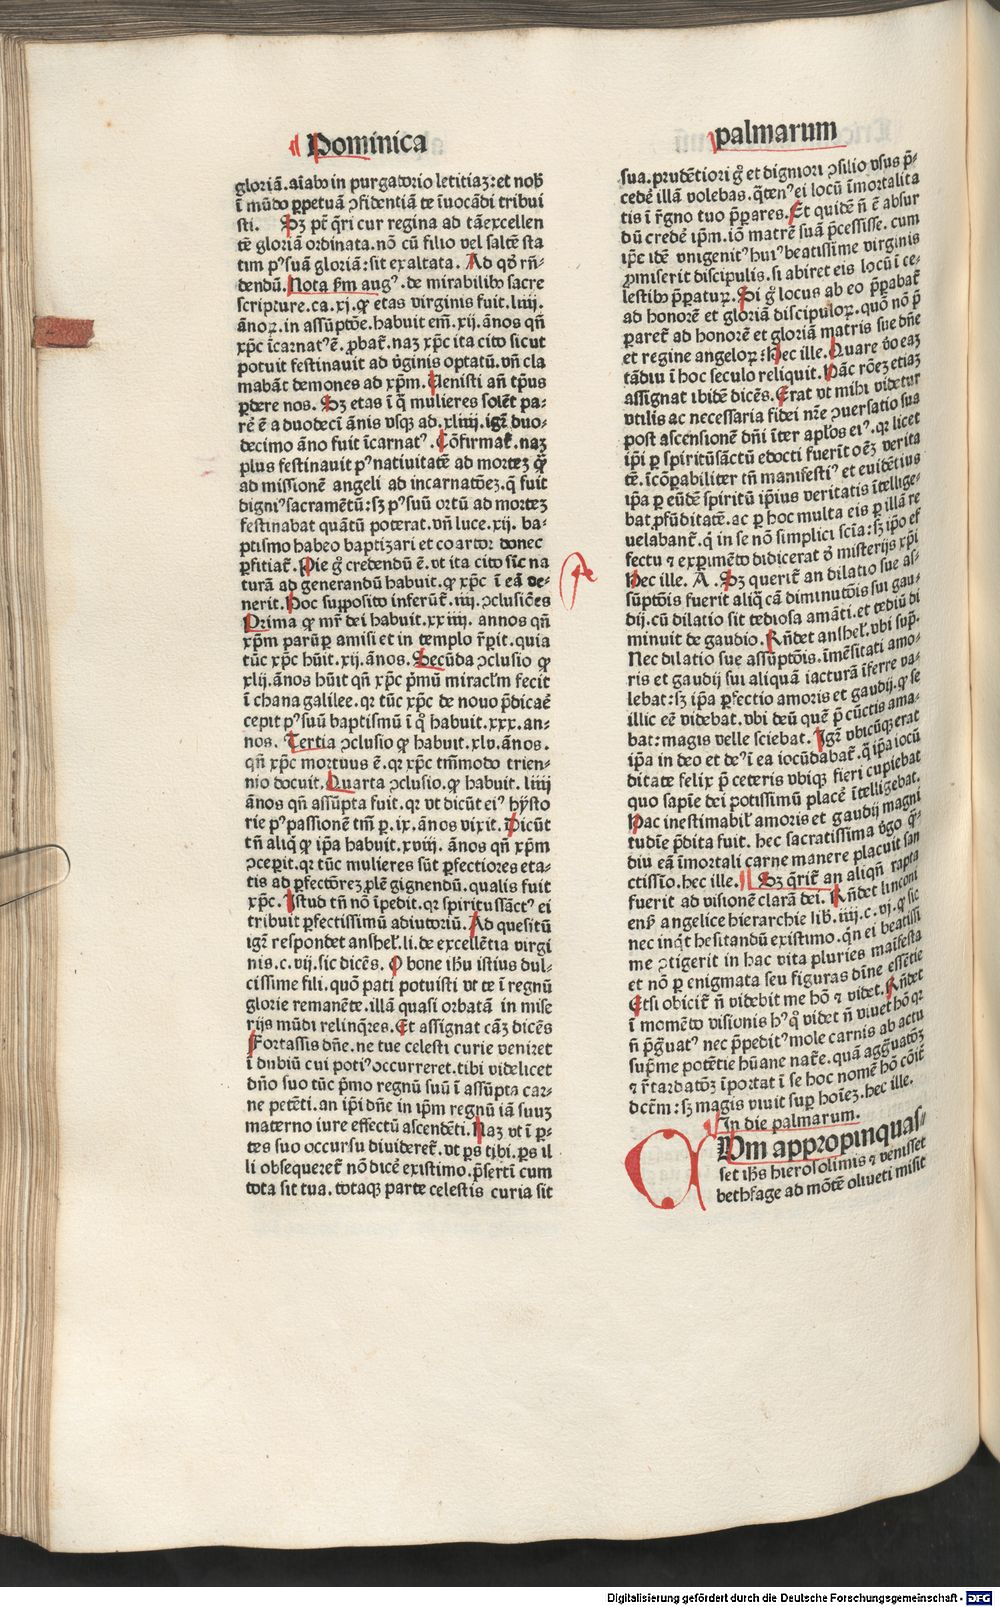 Dominica
palmarum
gloriā. aīab9 in purgatorio letitiaꝫ: et nob̄
ī mūdo ꝑpetuā ꝯfidentiā te īuocādi tribui
sti. Sꝫ pt̄ q̄ri cur regina ad tā excellen
tē gloriā ordinata. nō cū filio vel saltē sta
tim p9 suā gloriā: sit exaltata. Ad qd̄ rn̄-
dendū. Nota ẜm aug9. de mirabilib9 sacre
scripture. ca. xj. ꝙ etas virginis fuit. liiij.
ānoꝝ. in assūptōe. habuit em̄. xij. ānos qn̄
xp̄c īcarnat9 ē. ꝓbat̄. naꝫ xp̄c ita cito sicut
potuit festinauit ad v̄ginis optatū. vn̄ cla
mabāt demones ad xp̄m. Uenisti an̄ tp̄us
ꝑdere nos. Sꝫ etas ī q̄ mulieres solēt pa-
rē ē a duodeci ānis vsqꝫ ad. xliiij. igr̄ duo-
decimo āno fuit īcarnat9. Cōfirmat̄. naꝫ
plus festinauit p9 nativitatē ad morteꝫ q̄ꝫ
ad missionē angeli ad incarnatōeꝫ. q̄ fuit
digni9 sacramētū: sꝫ p9 suū ortū ad morteꝫ
festinabat quātū poterat. vn̄ luce. xij. ba-
ptismo habeo baptizari et coartor donec
ꝑfitiat̄. Pie g̊ credendū ē. vt ita cito sic̄ na
turā ad generandū habuit. ꝙ xp̄c ī eā ve-
nerit. Hoc supposito inferūt̄. iiij. ꝯclusiōes
Prima ꝙ mr̄ dei habuit. xxiiij. annos qn̄
xp̄m parūꝑ amisi et in templo r̄ꝑit. quia
tūc xp̄c hūit. xij. ānos. Secūda ꝯclusio ꝙ
xlij. ānos hūit qn̄ xp̄c p̄mū miracl̄m fecit
ī chana galilee. qꝛ tūc xp̄c de nouo p̄dicāē
cepit p9 suū baptismū ī q̊ habuit. xxx. an-
nos. Tertia ꝯclusio ꝙ habuit. xlv. ānos.
qn̄ xp̄c mortuus ē. qꝛ xp̄c tm̄modo trien-
nio docuit. Quarta ꝯclusio. ꝙ habuit. liiij
ānos qn̄ assūpta fuit. qꝛ vt dicūt ei9 hysto
rie p9 passionē tm̄ ꝑ. ix. ānos vixit. Dicūt
tn̄ aliq̄ ꝙ ip̄a habuit. xviij. ānos qn̄ xp̄m
ꝯceꝑit. qꝛ tūc mulieres sūt ꝑfectiores eta-
tis ad ꝑfectōreꝫ ꝓlē gignendū. qualis fuit
xp̄c. Istud tn̄ nō īpedit. qꝛ spiritussāct9 ei
tribuit ꝑfectissimū adiutoriū. Ad quesitū
igr̄ respondet anshel̄. li. de excellētia virgi
nis. c. vij. sic dicēs. O bone ihū istius dul-
cissime fili. quō pati potuisti vt te ī regnū
glorie remanēte. illā quasi orbatā in mise
rijs mūdi relinq̄res. Et assignat cāꝫ dicēs
Fortassis dn̄e. ne tue celesti curie veniret
ī dubiū cui poti9 occurreret. tibi videlicet
dn̄o suo tūc p̄mo regnū suū ī assūpta car-
ne petēti. an ip̄i dn̄e in ip̄m regnū iā suuꝫ
materno iure effectū ascendēti. Naꝫ vt ī ꝑ-
tes suo occursu diuideret̄. vt ꝑs tibi. ꝑs il
li obsequeret̄ nō dicē existimo. p̄serti cum
tota sit tua. totaqꝫ parte celestis curia sit
sua. prudētiori g̊ et digniori ꝯsilio vsus p̄-
cedē illā volebas. q̄ten9 ei locū īmortalita
tis ī r̄gno tuo p̄ꝑares. Et quidē n̄ ē absur
dū credē ip̄m. iō matrē suā p̄cessisse. cum
ip̄e idē vnigenit9 hui9 beatissime virginis
ꝓmiserit discipulis. si abiret eis locū ī ce-
lestib9 p̄ꝑatuꝝ. Si g̊ locus ab eo p̄ꝑabat̄
ad honorē et gloriā discipuloꝝ. quō nō p̄
ꝑaret̄ ad honorē et gloriā matris sue dn̄e
et regine angeloꝝ: Hec ille. Quare v̊o eaꝫ
tādiu ī hoc seculo reliquit. Hāc rōeꝫ etiaꝫ
assignat ibidē dicēs. Erat vt mihi videtur
vtilis ac necessaria fidei nr̄e ꝯuersatio sua
post ascensionē dn̄i īter apl̄os ei9. qꝛ licet
ip̄i ꝑ spiritūsāctū edocti fuerīt oēꝫ verita
tē. īcōꝑabiliter tn̄ manifesti9 et euidētius
ip̄a ꝑ eūdē spiritū ip̄ius veritatis ītellige-
bat ꝓfūditatē. ac ꝑ hoc multa eis ꝑ illā re
uelabant̄. q̄ in se nō simplici scīa: sꝫ ip̄o ef
fectu ⁊ exꝑimēto didicerat d̄ misterijs xp̄i
Hec ille. A. Sꝫ querit̄ an dilatio sue as-
sūptōis fuerit aliq̄ cā diminutōis sui gau-
dij. cū dilatio sit tediosa amāti. et tediū di
minuit de gaudio. Rn̄det anshel̄. vbi sup̄.
Nec dilatio sue assūptōis. īmēsitati amo-
ris et gaudij sui aliquā iacturā īferre va-
lebat: sꝫ ip̄a ꝑfectio amoris et gaudij. ꝙ se
illic eē videbat. vbi deū quē p̄ cūctis ama-
bat: magis velle sciebat. Igr̄ vbicūqꝫ erat
ip̄a in deo et de9 ī ea iocūdabat̄. q̄ ip̄a iocū
ditate felix p̄ ceteris vbiqꝫ fieri cupiebat
quo sapiē dei potissimū placē ītelligebat.
Hac inestimabil̄ amoris et gaudij magni
tudīe p̄dita fuit. hec sacratissima v̊go q̄ꝫ-
diu eā īmortali carne manere placuit san
ctissīo. hec ille. Sꝫ q̄rit̄ an aliqn̄ rapta
fuerit ad visionē clarā dei. Rn̄det linconi
ens̄ angelice hierarchie lib. iiij. c. vj. ꝙ sic
nec inq̄t hesitandū existimo. qn̄ ei beatissi
me ꝯtigerit in hac vita pluries maīfesta
et nō ꝑ enigmata seu figuras dīne essētie
Etsi obicit̄ n̄ videbit me hō ⁊ videt. Rn̄det
ī momēto visionis h9 qd̄ videt n̄ viuet hō qꝛ
n̄ p̄g̊uat9 nec p̄pedit9 mole carnis ab actu
sup̄me potētie hūane nat̄e. quā agg̊uatōꝫ
⁊ r̄tardatōꝫ īportat ī se hoc nomē hō cōit̄
dictm̄: sꝫ magis viuit suꝑ hoīeꝫ. hec ille.
In die palmarum.
CUm appropinquas-
set ihs hierosolimis ⁊ venisset
bethfage ad mōtē oliueti misit
Digitalisierung gefördert durch die Deutsche Forschungsgemeinschaft - DFG